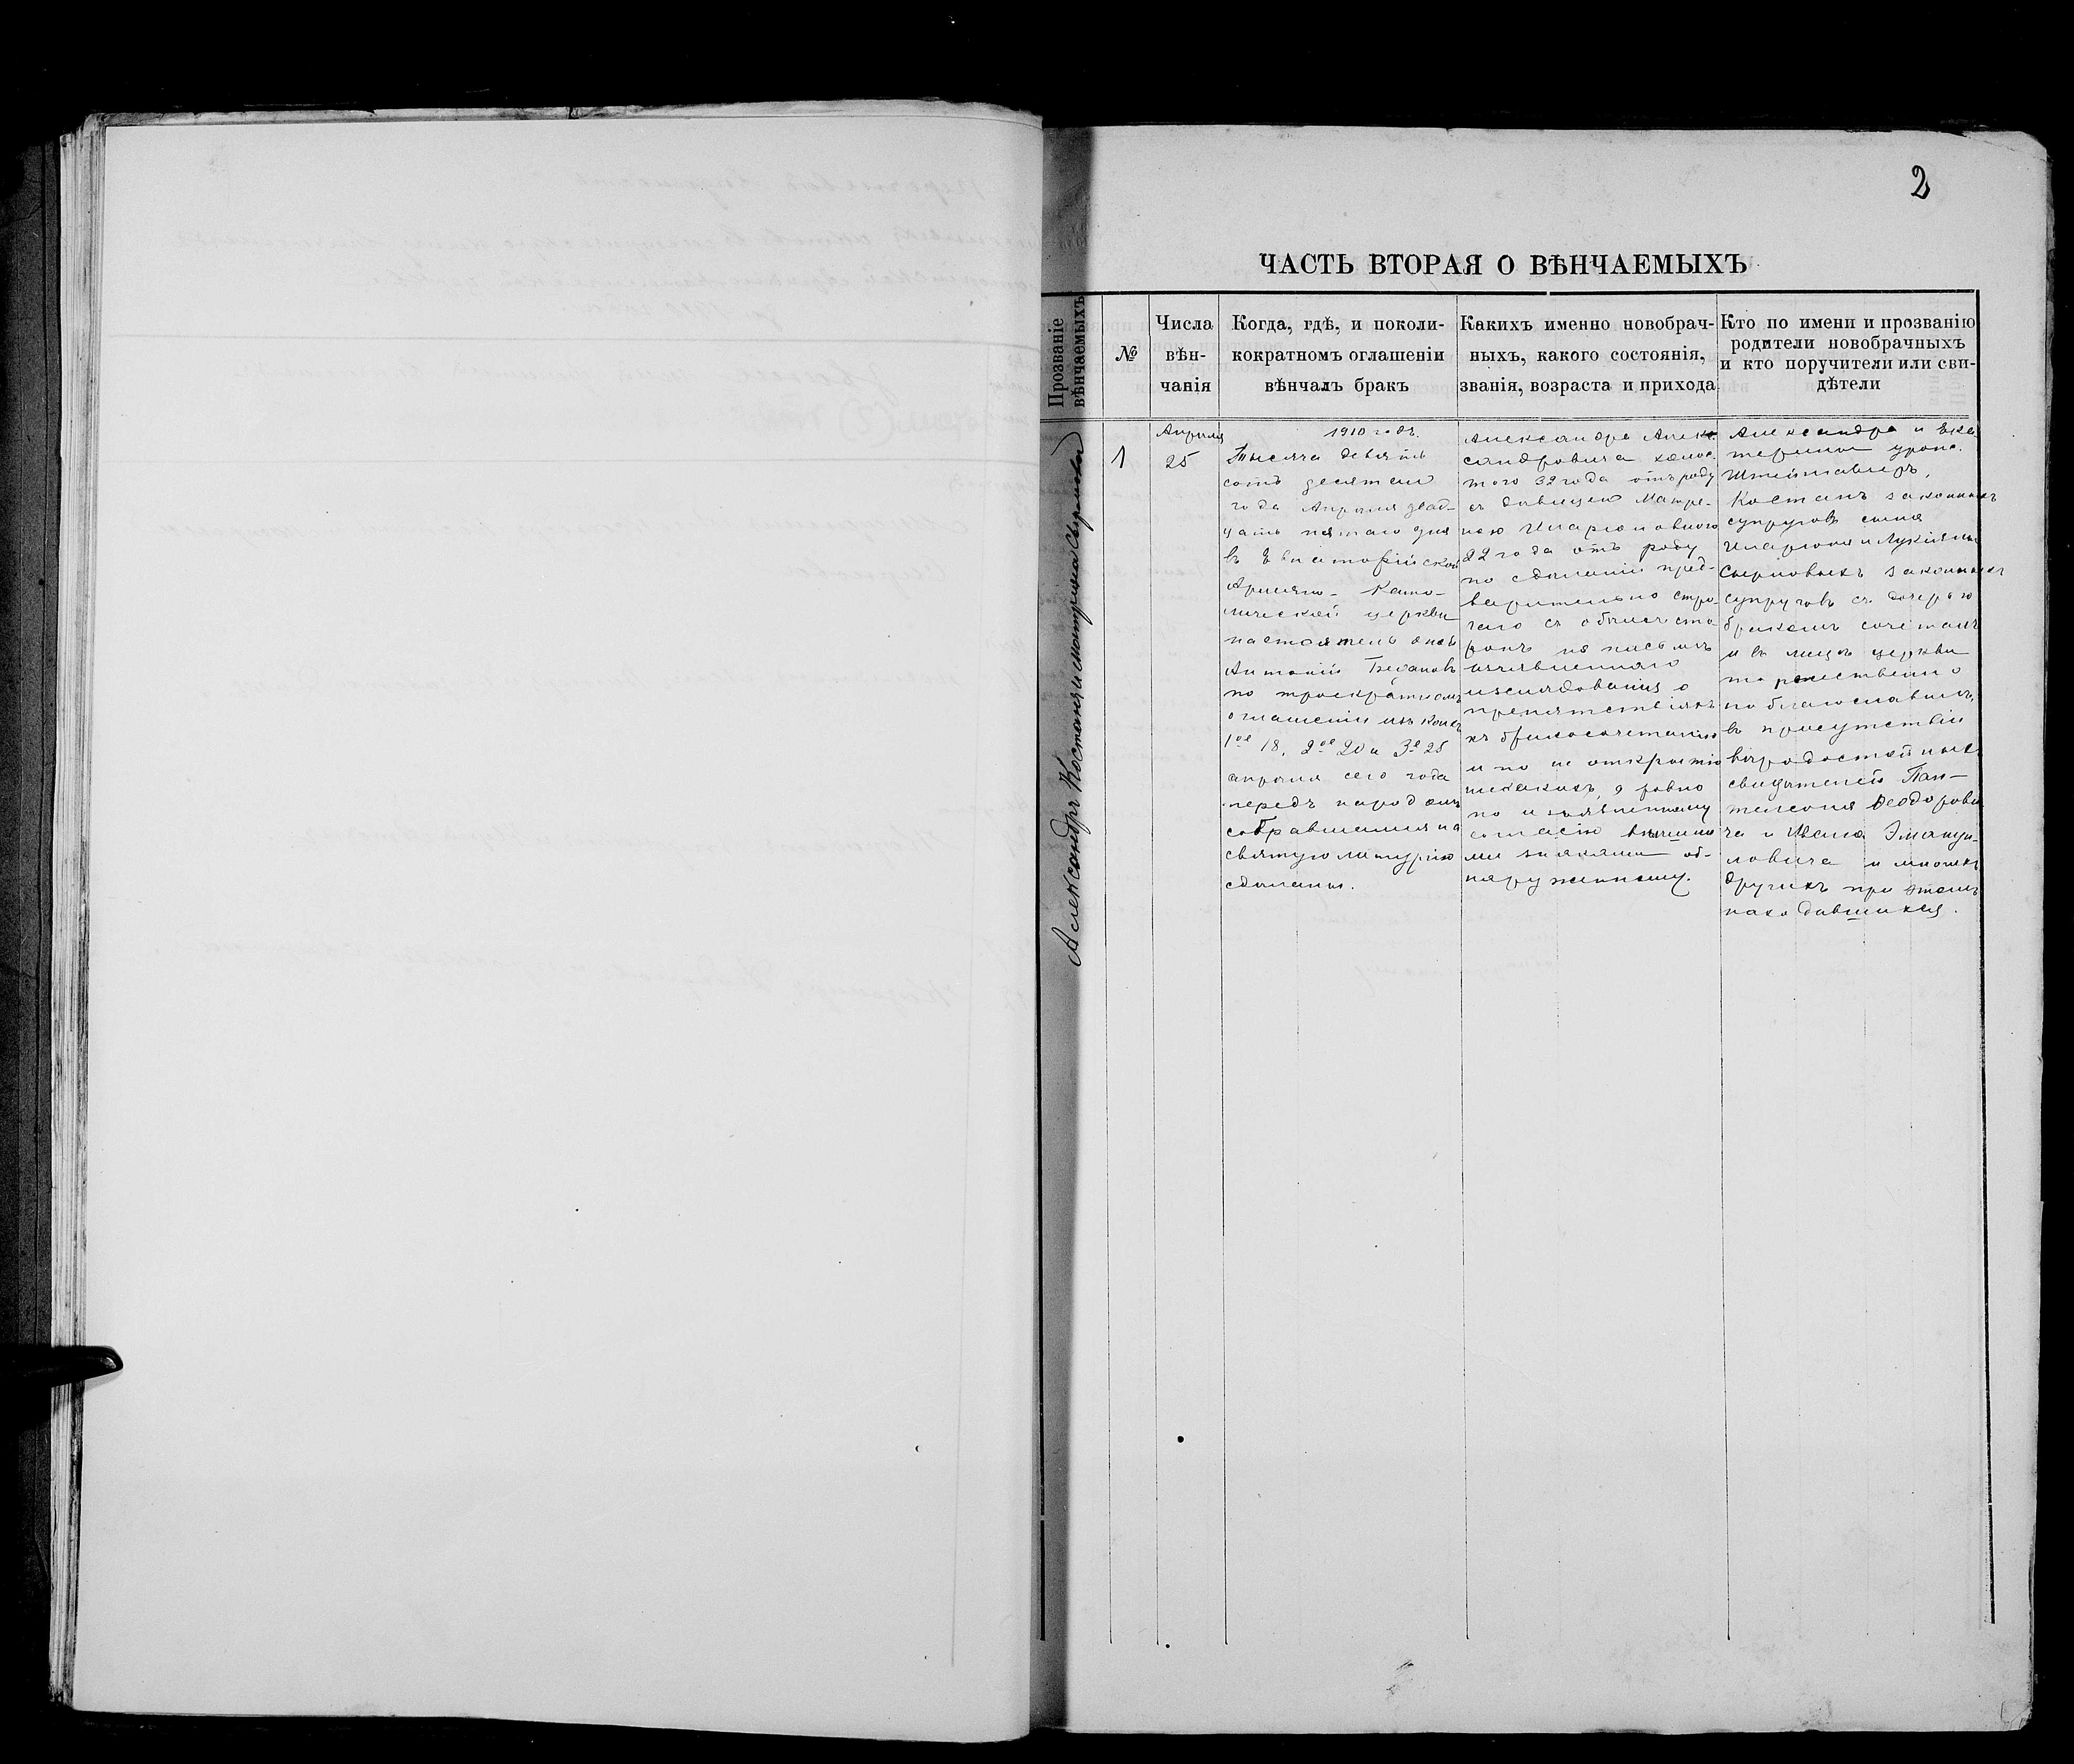 2
ЧАСТЬ ВТОРАЯ О ВѢНЧАЕМЫХЪ
Прозваніе
вѣнчаемыхъ
№
Числа
вѣн-
чанія
Когда, гдѣ, и поколи-
кократномъ оглашеніи
вѣнчалъ бракъ
Какихъ именно новобрач-
ныхъ, какого состоянія,
званія, возраста и прихода
Кто по имени и прозванію
родители новобрачныхъ
и кто поручители или сви-
дѣтели
Александръ Костанъ и Матрона Сырпова
1
Апрѣля
25
1910 годъ.
Тысяча девять
сотъ десятаго
года Апрѣля двад-
цать пятаго дня
въ Евпаторійской
Армяно- Като-
лической церкви
настоятель оной
Антоній
по троекратномъ
оглашеніи изъ коихъ
1ое 18, 2ое 20 и 3е 25
апрѣля сего года
передъ народомъ
собравшимся на
святую литургію
сдѣланы.
Александра Алек-
сандровича холос-
того 32 года отъ роду
съ дѣвицею Матре-
ною Иларіоновною
22 года отъ роду
по сдѣланіи пред-
варительно стро-
гаго съ обѣихъ сто
ронъ на письмѣ
изъявленнаго
изслѣдованія о
препятствіяхъ
къ бракосочетанію
и по не открытію
никакихъ, а равно
по изъявленному
согласію внѣшни
ми знаками об-
наруженному.
Александра и Ека-
терины урожд.
Костанъ законныхъ
супруговъ сына
Иларіона и Лукіяны
Сырповыхъ законныхъ
супруговъ съ дочерью
бракомъ сочеталъ
и въ лицѣ церкви
торжественно
поблагословилъ,
въ присутствіи
вѣродостойныхъ
свидѣтелей Пан-
телеона Ѳеодорови
ча и Ивана Эмануи-
ловича и многихъ
другихъ при этомъ
находившихся.